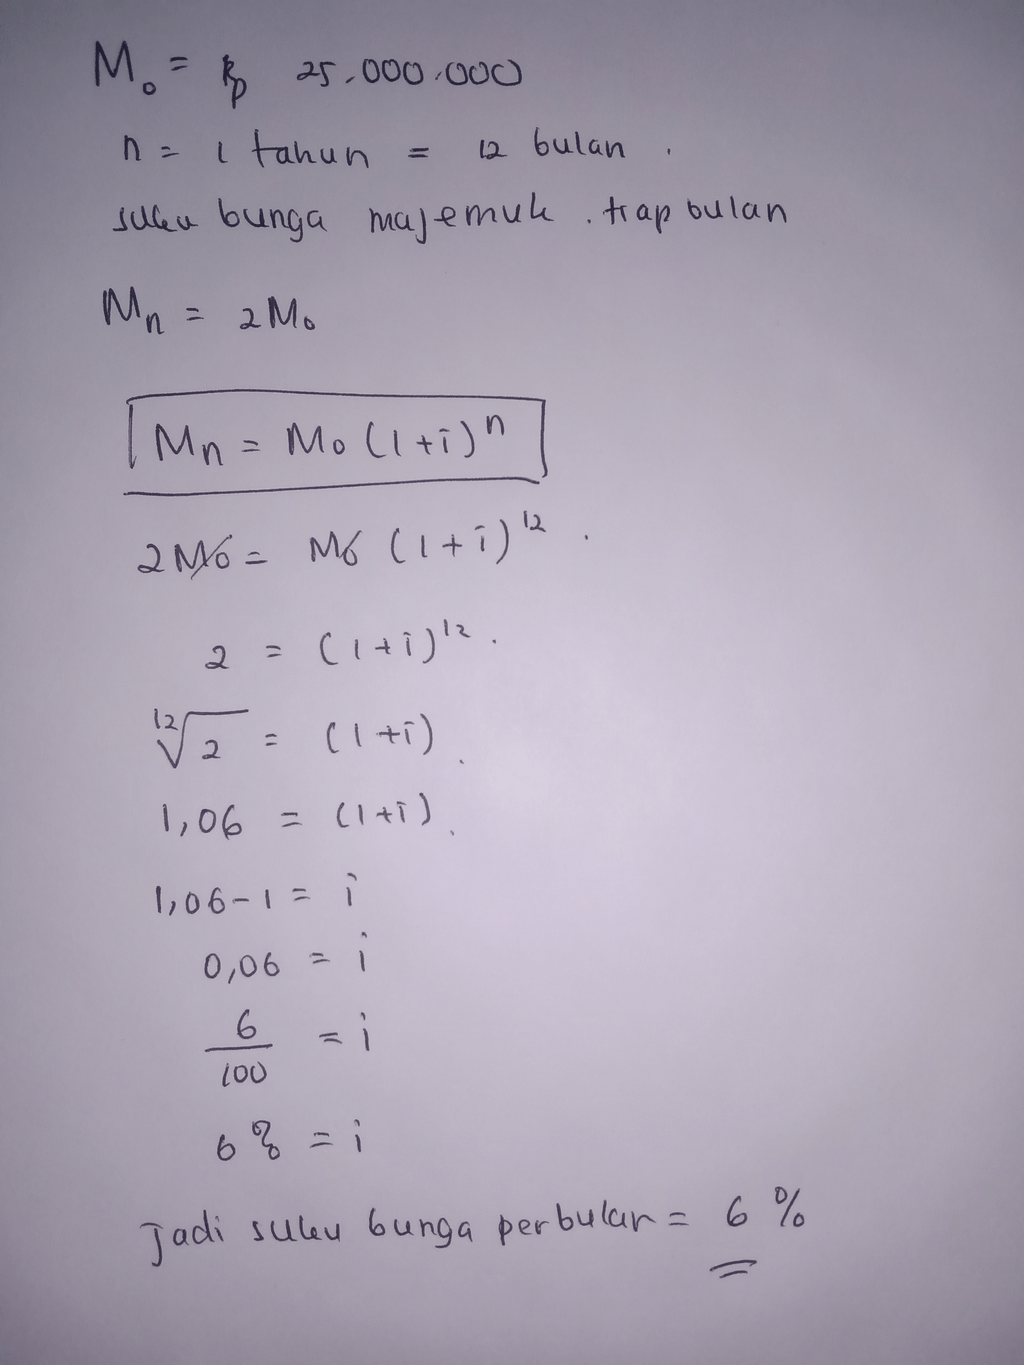 M₀ = Rp 25.000.000
n = 1 tahun = 12 bulan.
suku bunga majemuk. tiap bulan
Mn = 2M₀
Mn = M₀ (1+i)ⁿ
2M₀ = M₀ (1+i)¹².
2 = (1+i)¹².
¹²√2 = (1+i).
1,06 = (1+i).
1,06-1 = i
0,06 = i
6/100 = i
6% = i
Jadi suku bunga perbulan = 6%